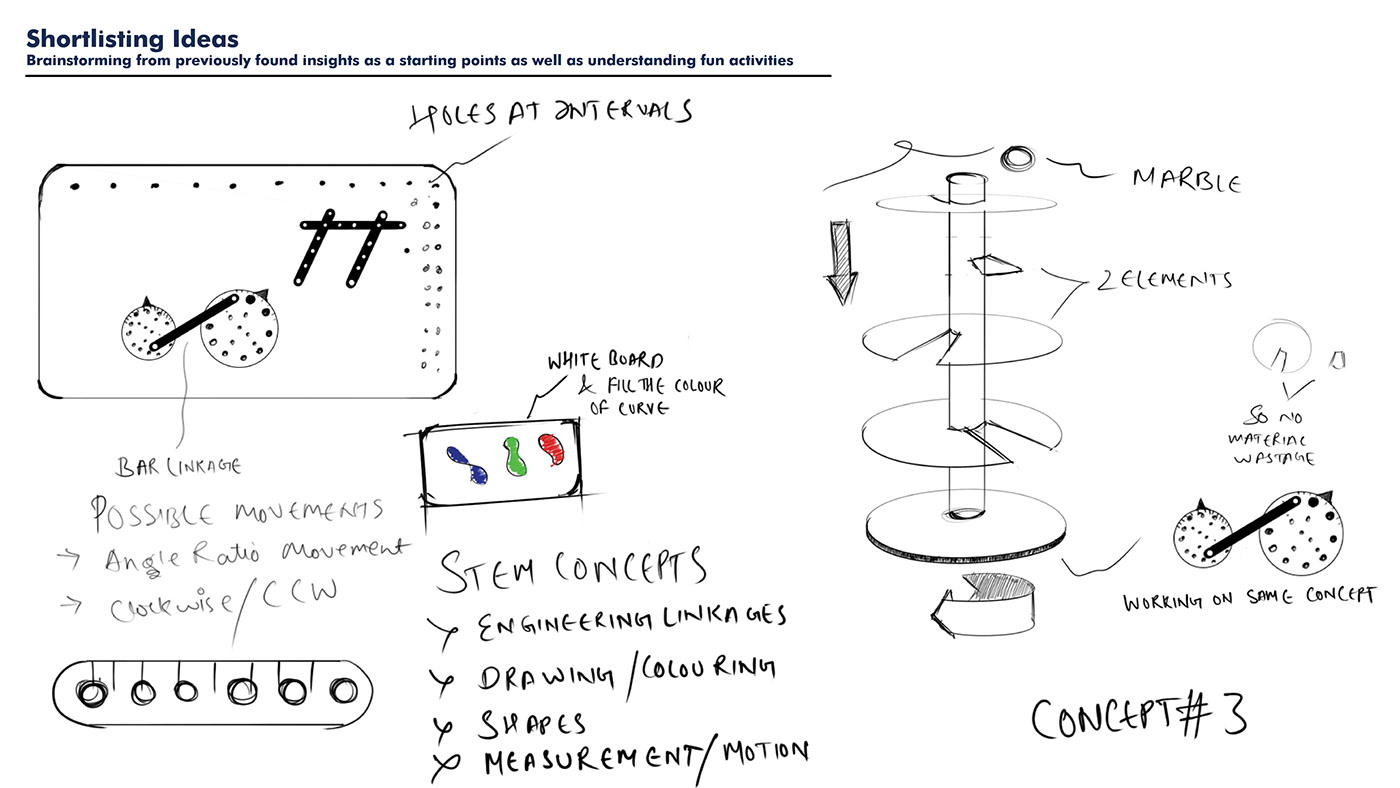 Shortlisting Ideas
Brainstorming from previously found insights as a starting points as well as understanding fun activities
HOLES AT INTERVALS
BAR LINKAGE
POSSIBLE MOVEMENTS
→ Angle Ratio Movement
→ Clockwise/CCW
WHITE BOARD
& FILL THE COLOUR
OF CURVE
STEM CONCEPTS
ENGINEERING LINKAGES
DRAWING/COLOURING
SHAPES
MEASUREMENT/MOTION
MARBLE
2 ELEMENTS
SO NO
MATERIAL
WASTAGE
WORKING ON SAME CONCEPT
CONCEPT# 3